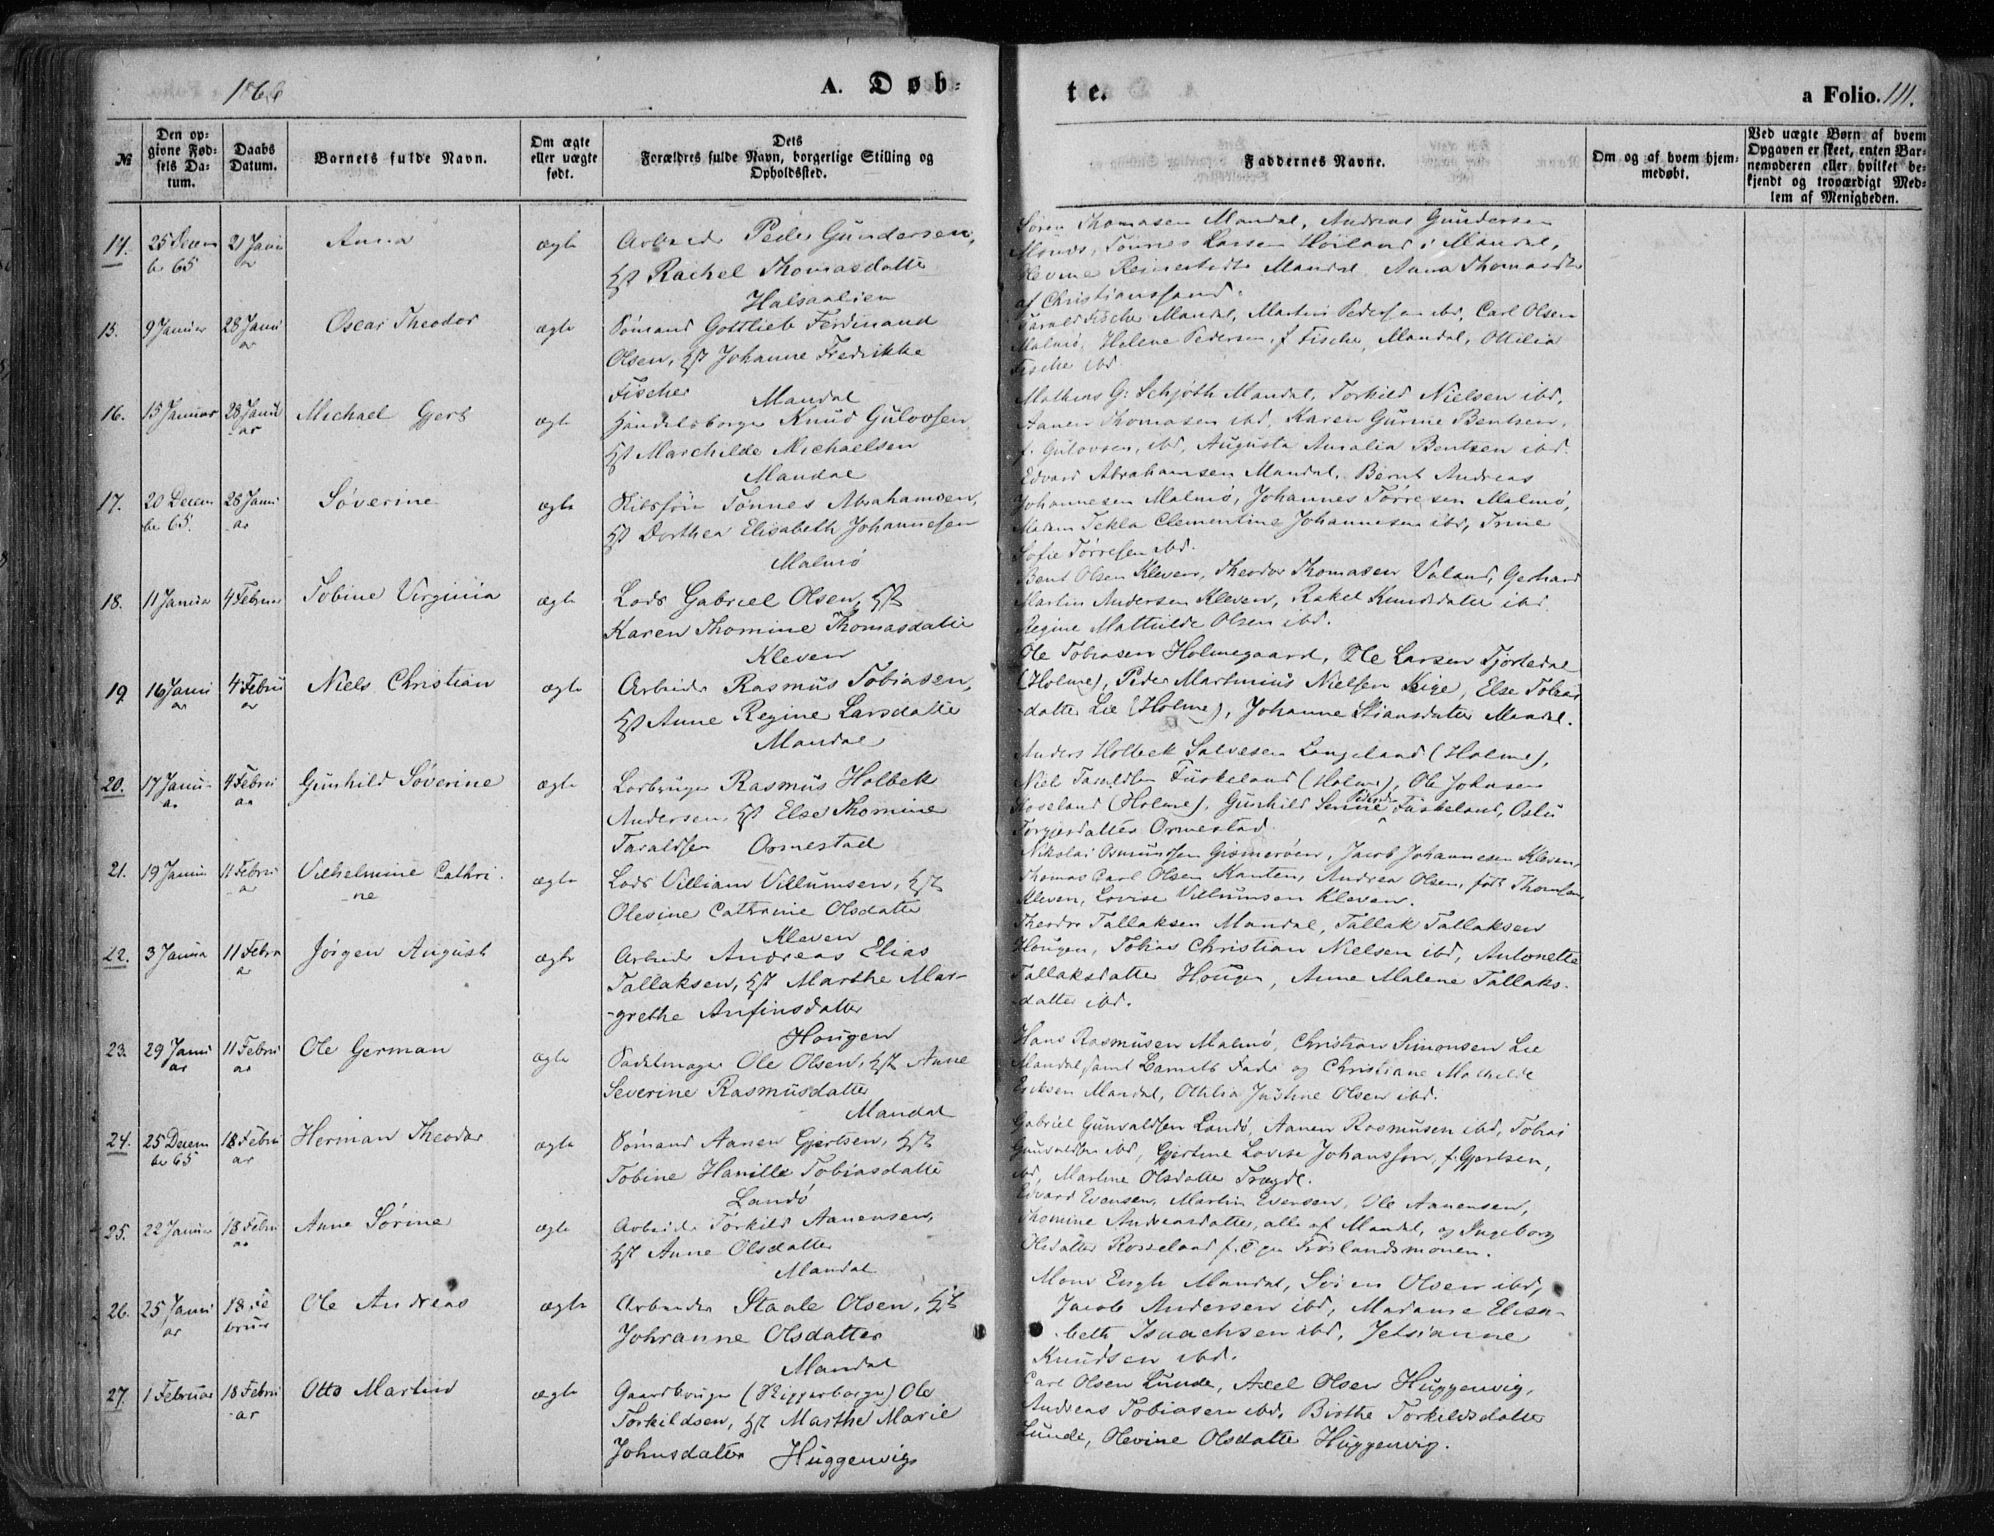 1866
A. Døb-
te.
a Folio. 111.
№
Den op-
givne Fød-
sels Da-
tum.
Daabs
Datum.
Barnets fulde Navn.
Om ægte
eller uægte
født.
Dets
Forældres fulde Navn, borgerlige Stilling og
Opholdssted.
Faddernes Navne.
Om og af hvem hjem-
medøbt.
Ved uægte Børn af hvem
Opgaven er skeet, enten Bar-
nemoderen eller hvilket be-
kjendt og troværdigt Med-
lem af Menigheden.
14. 25 Decem 21 Janu Anna ægte Arbeider Peder Gundersen,
ber 65 ar Rachel Thomasdatter
Halsaalien
Søren Thomasen Mandal, Andreas Gundersen
Tønnes Larsen Høiland i Mandal,
Mandal, Anna Thomasdtr
af Christianssand.
15. 9 Januar 28 Janu Oscar Theodor ægte Sømand Gottlieb Ferdinand
ar Olsen, Johanne Fredrikke
Fischer Mandal
Tarald Fischer Mandal, Martin Pedersen ibd, Carl Olsen
Malmø, Helene Pedersen, f Fischer, Mandal, Ottilia
Fischer ibd.
16. 15 Januar 28 Janu Michael Gjert ægte Handelsborger Knud Gulovsen,
ar Marchilde Michaelsen
Mandal
Mathens G. Schjøth Mandal, Torkild Nielsen ibd,
Aanen Thomasen ibd, Karen Gurine Bentsen,
f. Gulovsen, ibd, Augusta Amalia Bentzen ibd.
17. 20 Decem 28 Janu Søverine ægte Tønnes Abrahamsen,
ber 65. ar Dorthea Elisabeth Johannesen
Malmø
Edvard Abrahamsen Mandal, Bernt Andreas
Johannesen Malmø, Johannes Tørresen Malmø,
Madam Tekla Clementine Johannesen ibd, Trine
Sofie Tørresen ibd.
18. 11 Januar 4 Februar Tobine Virginia ægte Lods Gabriel Olsen,
Karen Thomine Thomasdatter
Kleven
Bent Olsen Kleven, Theodor Thomasen Valand, Gerhard
Martin Andersen Kleven, Rakel Knudsdatter ibd,
Regine Mathilde Olsen ibd.
19. 16 Janu 4 Febru Niels Christian ægte Arbeider Rasmus Tobiasen,
ar ar Anne Regine Larsdatter
Mandal
Ole Tobiasen Holmegaard, Ole Larsen Fjortedal
(Holme), Peder Martinius Nielsen Keige, Else Tobias
-datter Lie (Holme), Johanne Stiansdatter Mandal.
20. 17 Janu- 4 Febru Gunhild Søverine ægte Rasmus Holbek
ar ar Andersen, Else Thomine
Taraldsen Ormestad
Anders Holbek Salvesen Langeland (Holme),
Niels Taraldsen Fuskeland (Holme), Ole Johnsen
(Holme), Gunhild Serine Fuskeland, Oslu
Torgjersdatter Ormestad.
21. 19 Januar 11 Febru Vilhelmine Cathri- ægte Lods Villiam Villumsen,
-ar -ne Olevine Cathrine Olsdatter
Kleven
Nikolai Osmundsen Gismerøen, Jacob Johannesen Kleven,
Thomas Carl Olsen Kanten, Andrea Olsen, født Thomsen
Kleven, Lovise Villumsen Kleven.
22. 3 Janua 11 Febru Jørgen August ægte Arbeider Andreas Elias
ar Tallaksen, Marthe Mar-
-grethe Anfinsdatter
Hougen
Theodor Tallaksen Mandal, Tallak Tallaksen
Hougen, Tobias Christian Nielsen ibd, Antonette
Tallaksdatter Hougen, Anne Malene Tallaks-
-datter ibd.
23. 29 Janu 11 Febru Ole German ægte Sadelmager Ole Olsen, Anne
ar ar Severine Rasmusdatter
Mandal
Hans Rasmusen Malmø, Christian Simonsen Lie
Mandal, samt Barnets Fader og Christiane Mathilde
Eriksen Mandal, Othilia Justine Olsen ibd.
24. 25 Decem 18 Febru Herman Theodor ægte Sømand Aanen Gjertsen,
ber 65 ar Tobine Hanille Tobiasdatter
Landø
Gabriel Gunvaldsen Landø, Aanen Rasmusen ibd, Tobias
Gunvaldsen ibd, Gjertine Lovise Johanssen, f. Gjertsen,
ibd, Martine Olsdatter Trægde.
25. 22 Januar 18 Febru Anne Sørine ægte Arbeider Torkild Aanensen,
ar Anne Olsdatter
Mandal
Edvard Evensen, Martin Evensen, Ole Aanensen,
Thomine Andreasdatter, alle af Mandal, og Ingeborg
Olsdatter Rosseland Frøslandsmonen.
26. 25 Janu 18 Fe Ole Andreas ægte Arbeider Staale Olsen,
ar bruar Johranne Olsdatter
Mandal
Mons Eugh Mandal, Søren Olsen ibd,
Jacob Andersen ibd, Madame Elisa-
-beth Isaachsen ibd, Jetsianne
Knudsen ibd.
27. 1 Februar 18 Febru Otto Martin ægte Gaardbruger Ole
-ar Torkildsen, Marthe Marie
Johnsdatter Huggenvig
Carl Olsen Lunde, Axel Olsen Huggenvig,
Andreas Tobiasen ibd, Birthe Torkildsdatter
Lunde, Olevine Olsdatter Huggenvig.